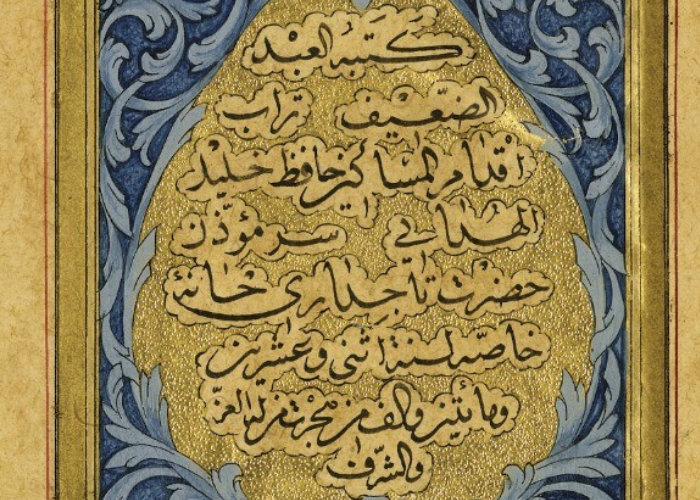 كَتَبَهُ العبد
الضعيف تراب
اقدام المساكين حافظ خليل
الهدائي سر مؤذن
حضرت تاجداري خانهٔ
خاصه لسنة اثنى وعشرين
ومائتين والف من هجرت من له العز
والشرف